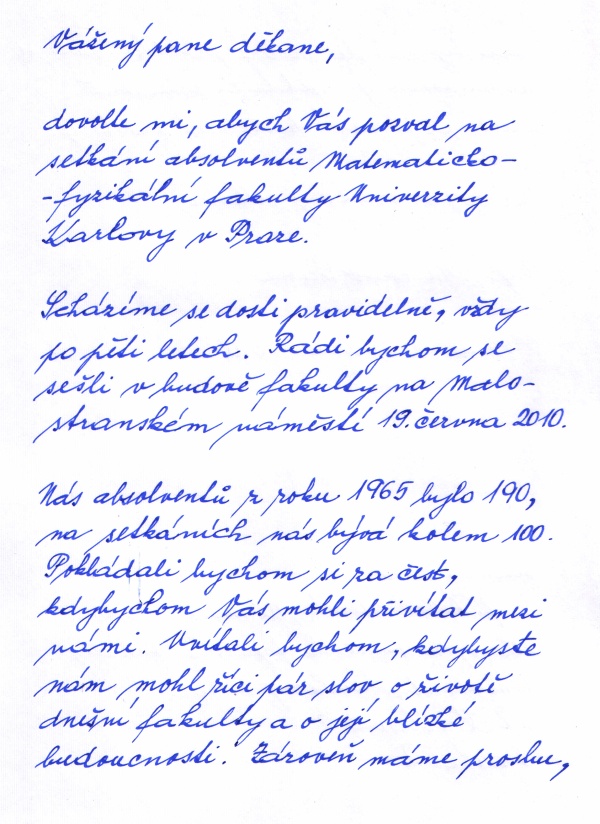 Vážený pane děkane,
dovolte mi, abych Vás pozval na
setkání absolventů Matematicko-
-fyzikální fakulty Univerzity
Karlovy v Praze.
Scházíme se dosti pravidelně, vždy
po pěti letech. Rádi bychom se
sešli v budově fakulty na Malo-
stranském náměstí 19. června 2010.
Nás absolventů z roku 1965 bylo 190,
na setkáních nás bývá kolem 100.
Pokládali bychom si za čest,
kdybychom Vás mohli přivítat mezi
námi. Uvítali bychom, kdybyste
nám mohl říci pár slov o životě
dnešní fakulty a o její blízké
budoucnosti. Zároveň máme prosbu,